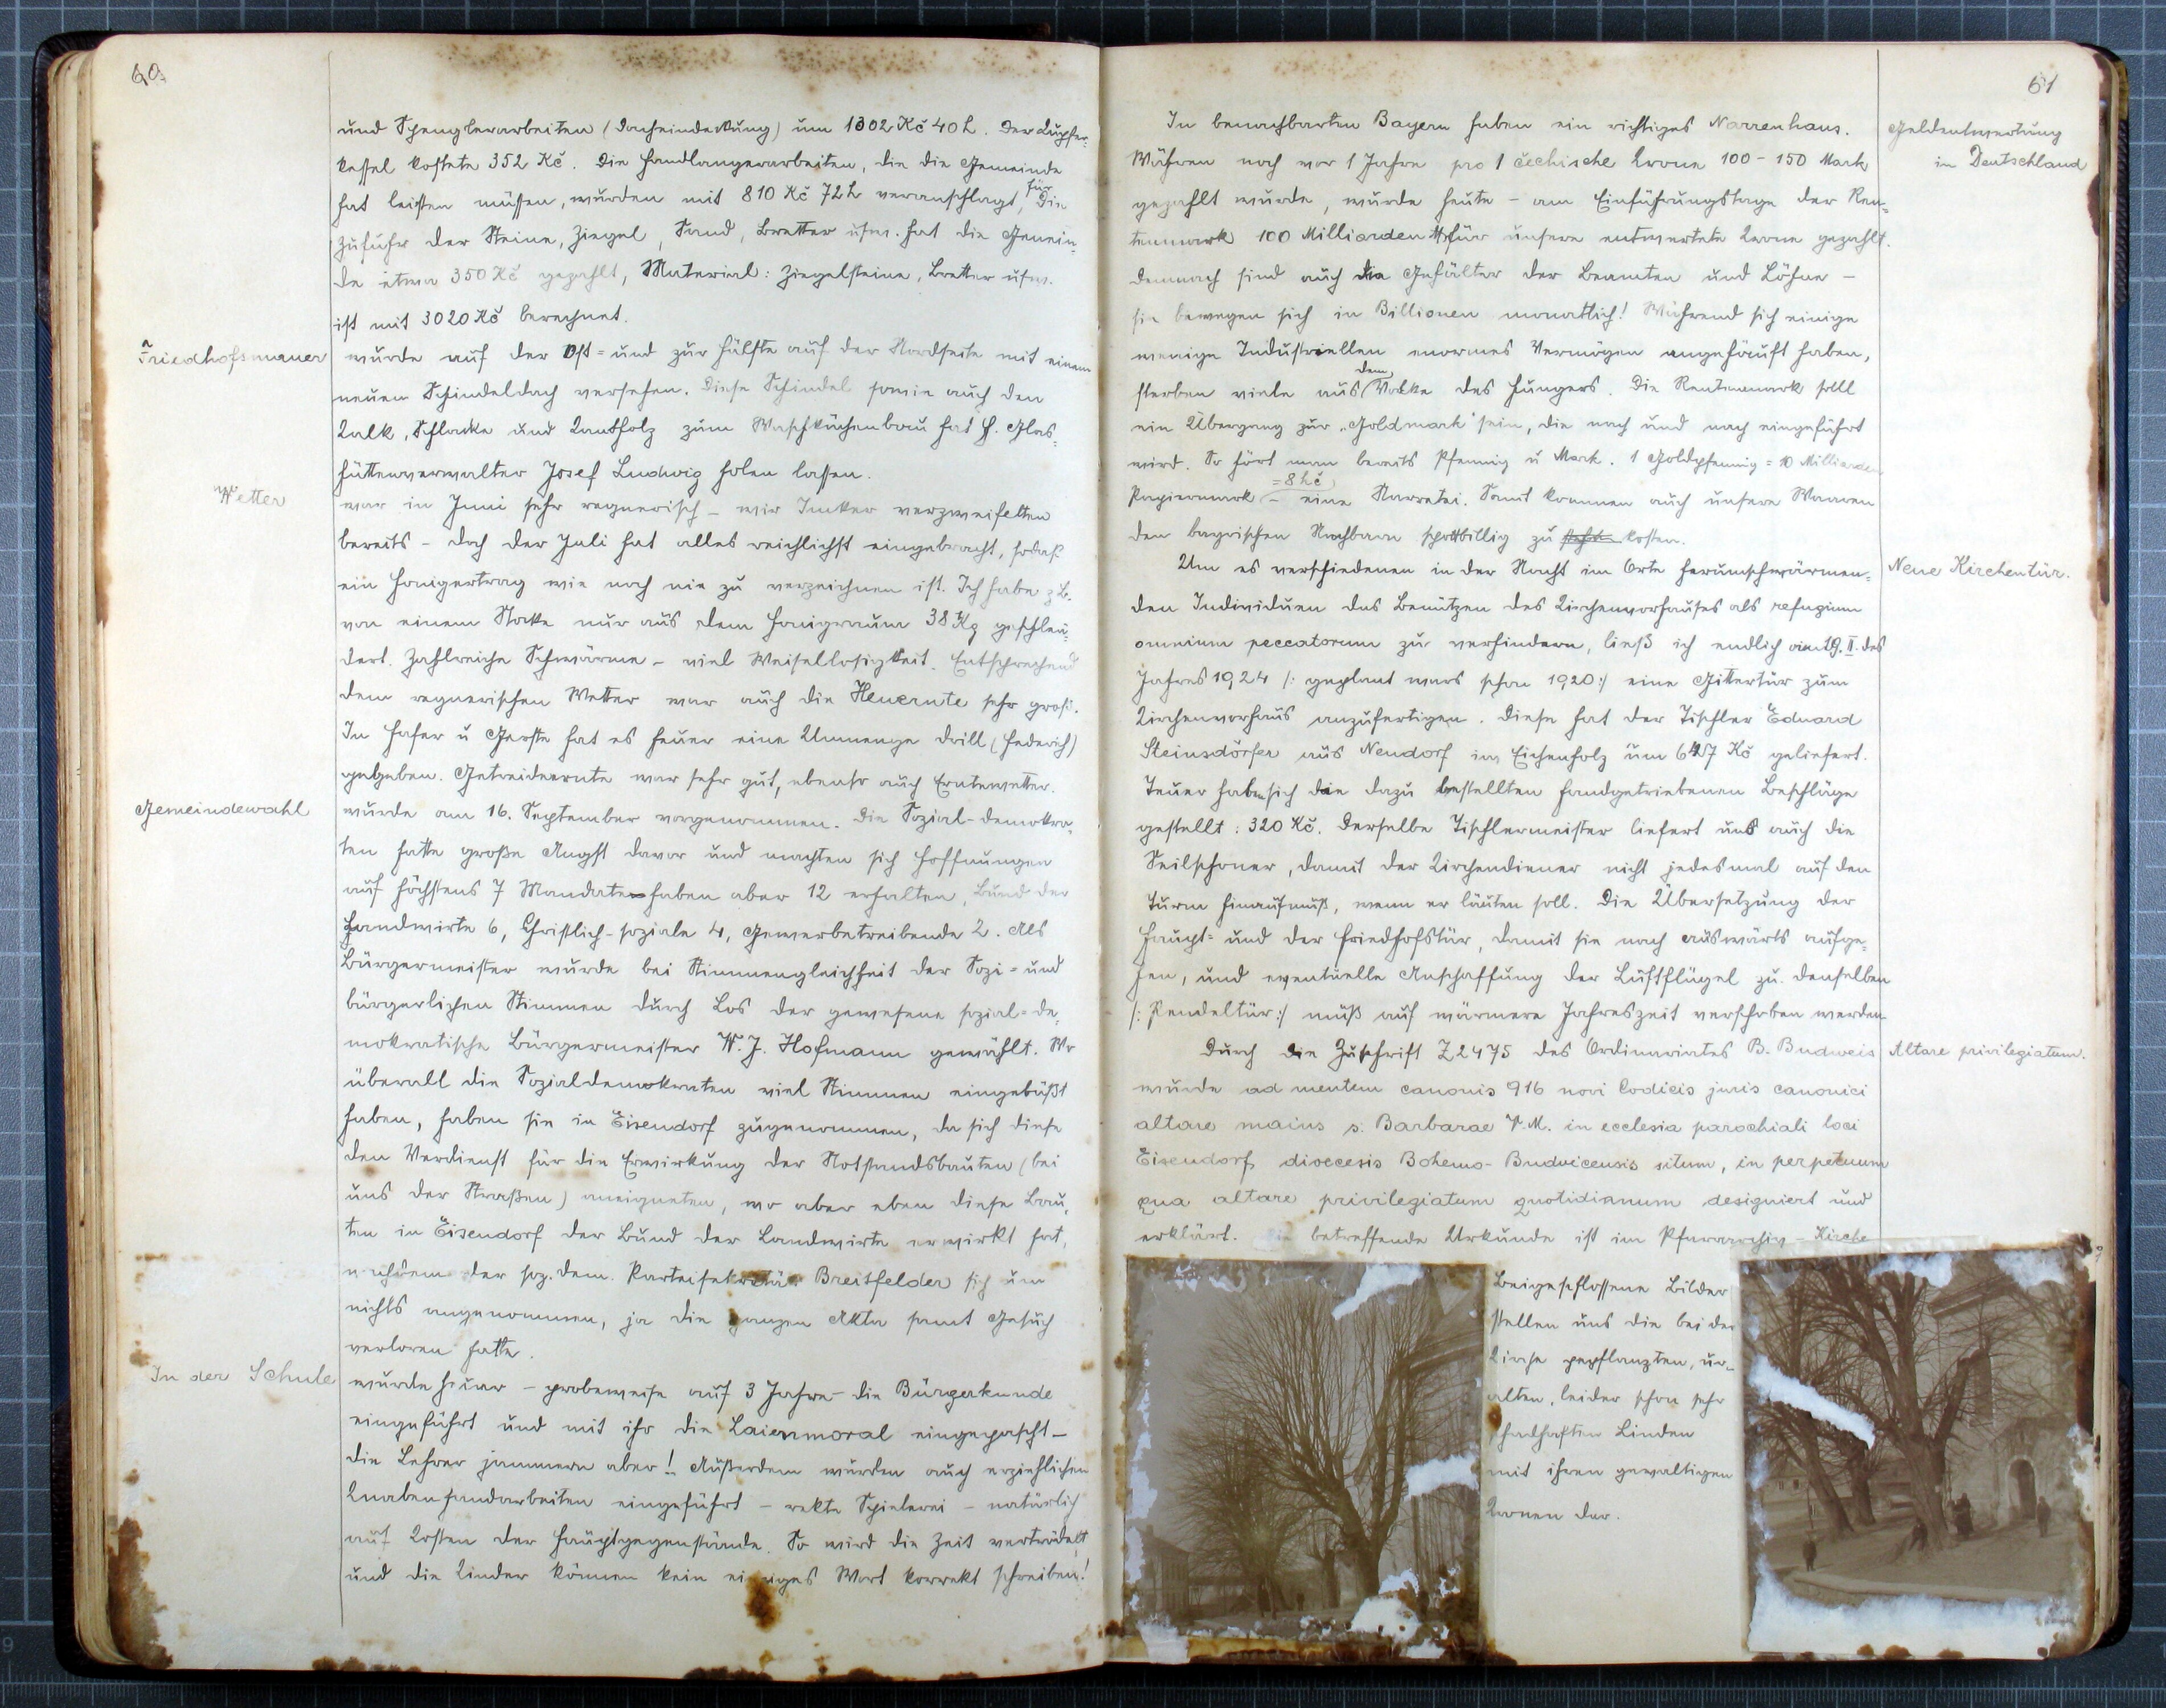 60.
und Spenglerarbeiten (Dacheindeckung) um 1302 Kč 40 h. Der Kupfer-
kessel kostete 352 Kč. Die Handlangerarbeiten, die die Gemeinde
hat leisten müssen, wurden mit 810 Kč 72 h veranschlagt, für die
Zufuhr der Steine, Ziegel, Sand, Bretter usw. hat die Gemein-
de etwa 350 Kč gezahlt, Material: Ziegelsteine, Bretter usw.
ist mit 3020 Kč berechnet.
Friedhofsmauer
wurde auf der Ost= und zur Hälfte auf der Nordseite mit einem
neuen Schindeldach versehen. Diese Schindel sowie auch den
Kalk, Schlacke und Kantholz zum Waschküchenbau hat H. Glas-
hüttenverwalter Josef Ludwig holen lassen.
Wetter
war in Juni sehr regnerisch – wir Imker verzweifelten
bereits – doch der Juli hat alles reichlichst eingebracht, sodaß
ein Honigertrag wie noch nie zu verzeichnen ist. Ich habe z.B.
von einem Stocke nur aus dem Honigraum 38 Kg geschleu-
dert. Zahlreiche Schwärme – viel Weisellosigkeit. Entsprechend
dem regnerischen Wetter war auch die Heuernte sehr groß.
In Hafer u Gerste hat es heuer eine Unmenge Drill (Hederich)
gegeben. Getreideernte war sehr gut, ebenso auch Erntewetter.
Gemeindewahl
wurde am 16. September vorgenommen. Die Sozial-demokra-
ten hatte große Angst davor und machten sich Hoffnungen
auf höchstens 7 Mandate haben aber 12 erhalten, Bund der
Landwirte 6, Christlich-soziale 4, Gewerbetreibende 2. Als
Bürgermeister wurde bei Stimmengleichheit der Sozi= und
bürgerlichen Stimmen durch Los der gewesene sozial=de-
mokratische Bürgermeister W. J. Hofmann gewählt. Wo
überall die Sozialdemokraten viel Stimmen eingebüßt
haben, haben sie in Eisendorf zugenommen, da sich diese
den Verdienst für die Erwirkung der Notstandsbauten (bei
uns der Straßen) aneigneten, wo aber eben diese Bau-
ten in Eisendorf der Bund der Landwirte erwirkt hat,
nachdem der soz. dem. Parteisekretär Breitfelder sich um
nichts angenommen, ja die ganzen Akta samt Gesuch
verloren hatte.
In der Schule
wurde heuer – probeweise auf 3 Jahre – die Bürgerkunde
eingeführt und mit ihr die Laienmoral eingepascht –
die Lehrer jammern aber! Außerdem wurden auch erziehlichen
Knabenhandarbeiten eingeführt – rekte Spielerei – natürlich
auf Kosten der Hauptgegenstände. So wird die Zeit vertrödelt
und die Kinder können kein einziges Wort korrekt schreiben!
61
Geldentwertung
in Deutschland
In benachbarten Bayern haben ein richtiges Narrenhaus.
Währen noch vor 1 Jahre pro 1 čechische Krone 100 – 150 Mark
gezahlt wurde, wurde heute – am Einführungstage der Ren=
tenmark 100 Milliarden M für unsere entwertete Krone gezahlt.
Demnach sind auch die Gehälter der Beamten und Löhne –
sie bewegen sich in Billionen monatlich! Während sich einige
wenige Industriellen enormes Vermögen angehäuft haben,
sterben viele aus dem Volke des Hungers. Die Rentenmark soll
ein Übergang zur „Goldmark" sein, die nach und nach eingeführt
wird. So hört man bereits Pfennig u Mark. 1 Goldpfennig = 10 Milliarden
Papiermark = 8 hč – eine Narretei. Somit kommen auch unsere Waaren
den bayrischen Nachbarn spottbillig zu kosten.
Neue Kirchentür.
Um es verschiedenen in der Nacht im Orte herumschwärmen=
den Individuen das Benützen des Kirchenvorhauses als refugium
omnium peccatorum zu verhindern, ließ ich endlich am 19. II. des
Jahres 1924 /: geplant wars schon 1920 :/ eine Gittertür zum
Kirchenvorhaus anzufertigen. Diese hat der Tischler Eduard
Steinsdörfer aus Neudorf in Eichenholz um 647 Kč geliefert.
Teuer haben sich die dazu bestellten handgetriebenen Beschläge
gestellt: 320 Kč. Derselbe Tischlermeister liefert uns auch die
Seilschoner, damit der Kirchendiener nicht jedesmal auf den
Turm hinauf muß, wenn er läuten soll. Die Übersetzung der
Haupt= und der Friedhofstür, damit sie nach auswärts aufge-
hen, und eventuelle Anschaffung der Luftflügel zu denselben
/: Pendeltür :/ muß auf wärmere Jahreszeit verschoben werden.
Altare privilegiatum.
Durch die Zuschrift Z 2475 des Ordinariates B. Budweis
wurde ad mentem canonis 916 novi Codicis juris canonici
altare maius s. Barbarae V. M. in ecclesia parochiali loci
Eisendorf dioecesis Bohemo-Budvicensis situm, in perpetuum
qua altare privilegiatum quotidianum designiert und
erklärt. Die betreffende Urkunde ist im Pfarrarchiv – Kirche
Beigeschlossene Bilder
stellen uns die bei der
Kirche gepflanzten, ur-
alten, leider schon sehr
schadhaften Linden
mit ihren gewaltigen
Kronen dar.